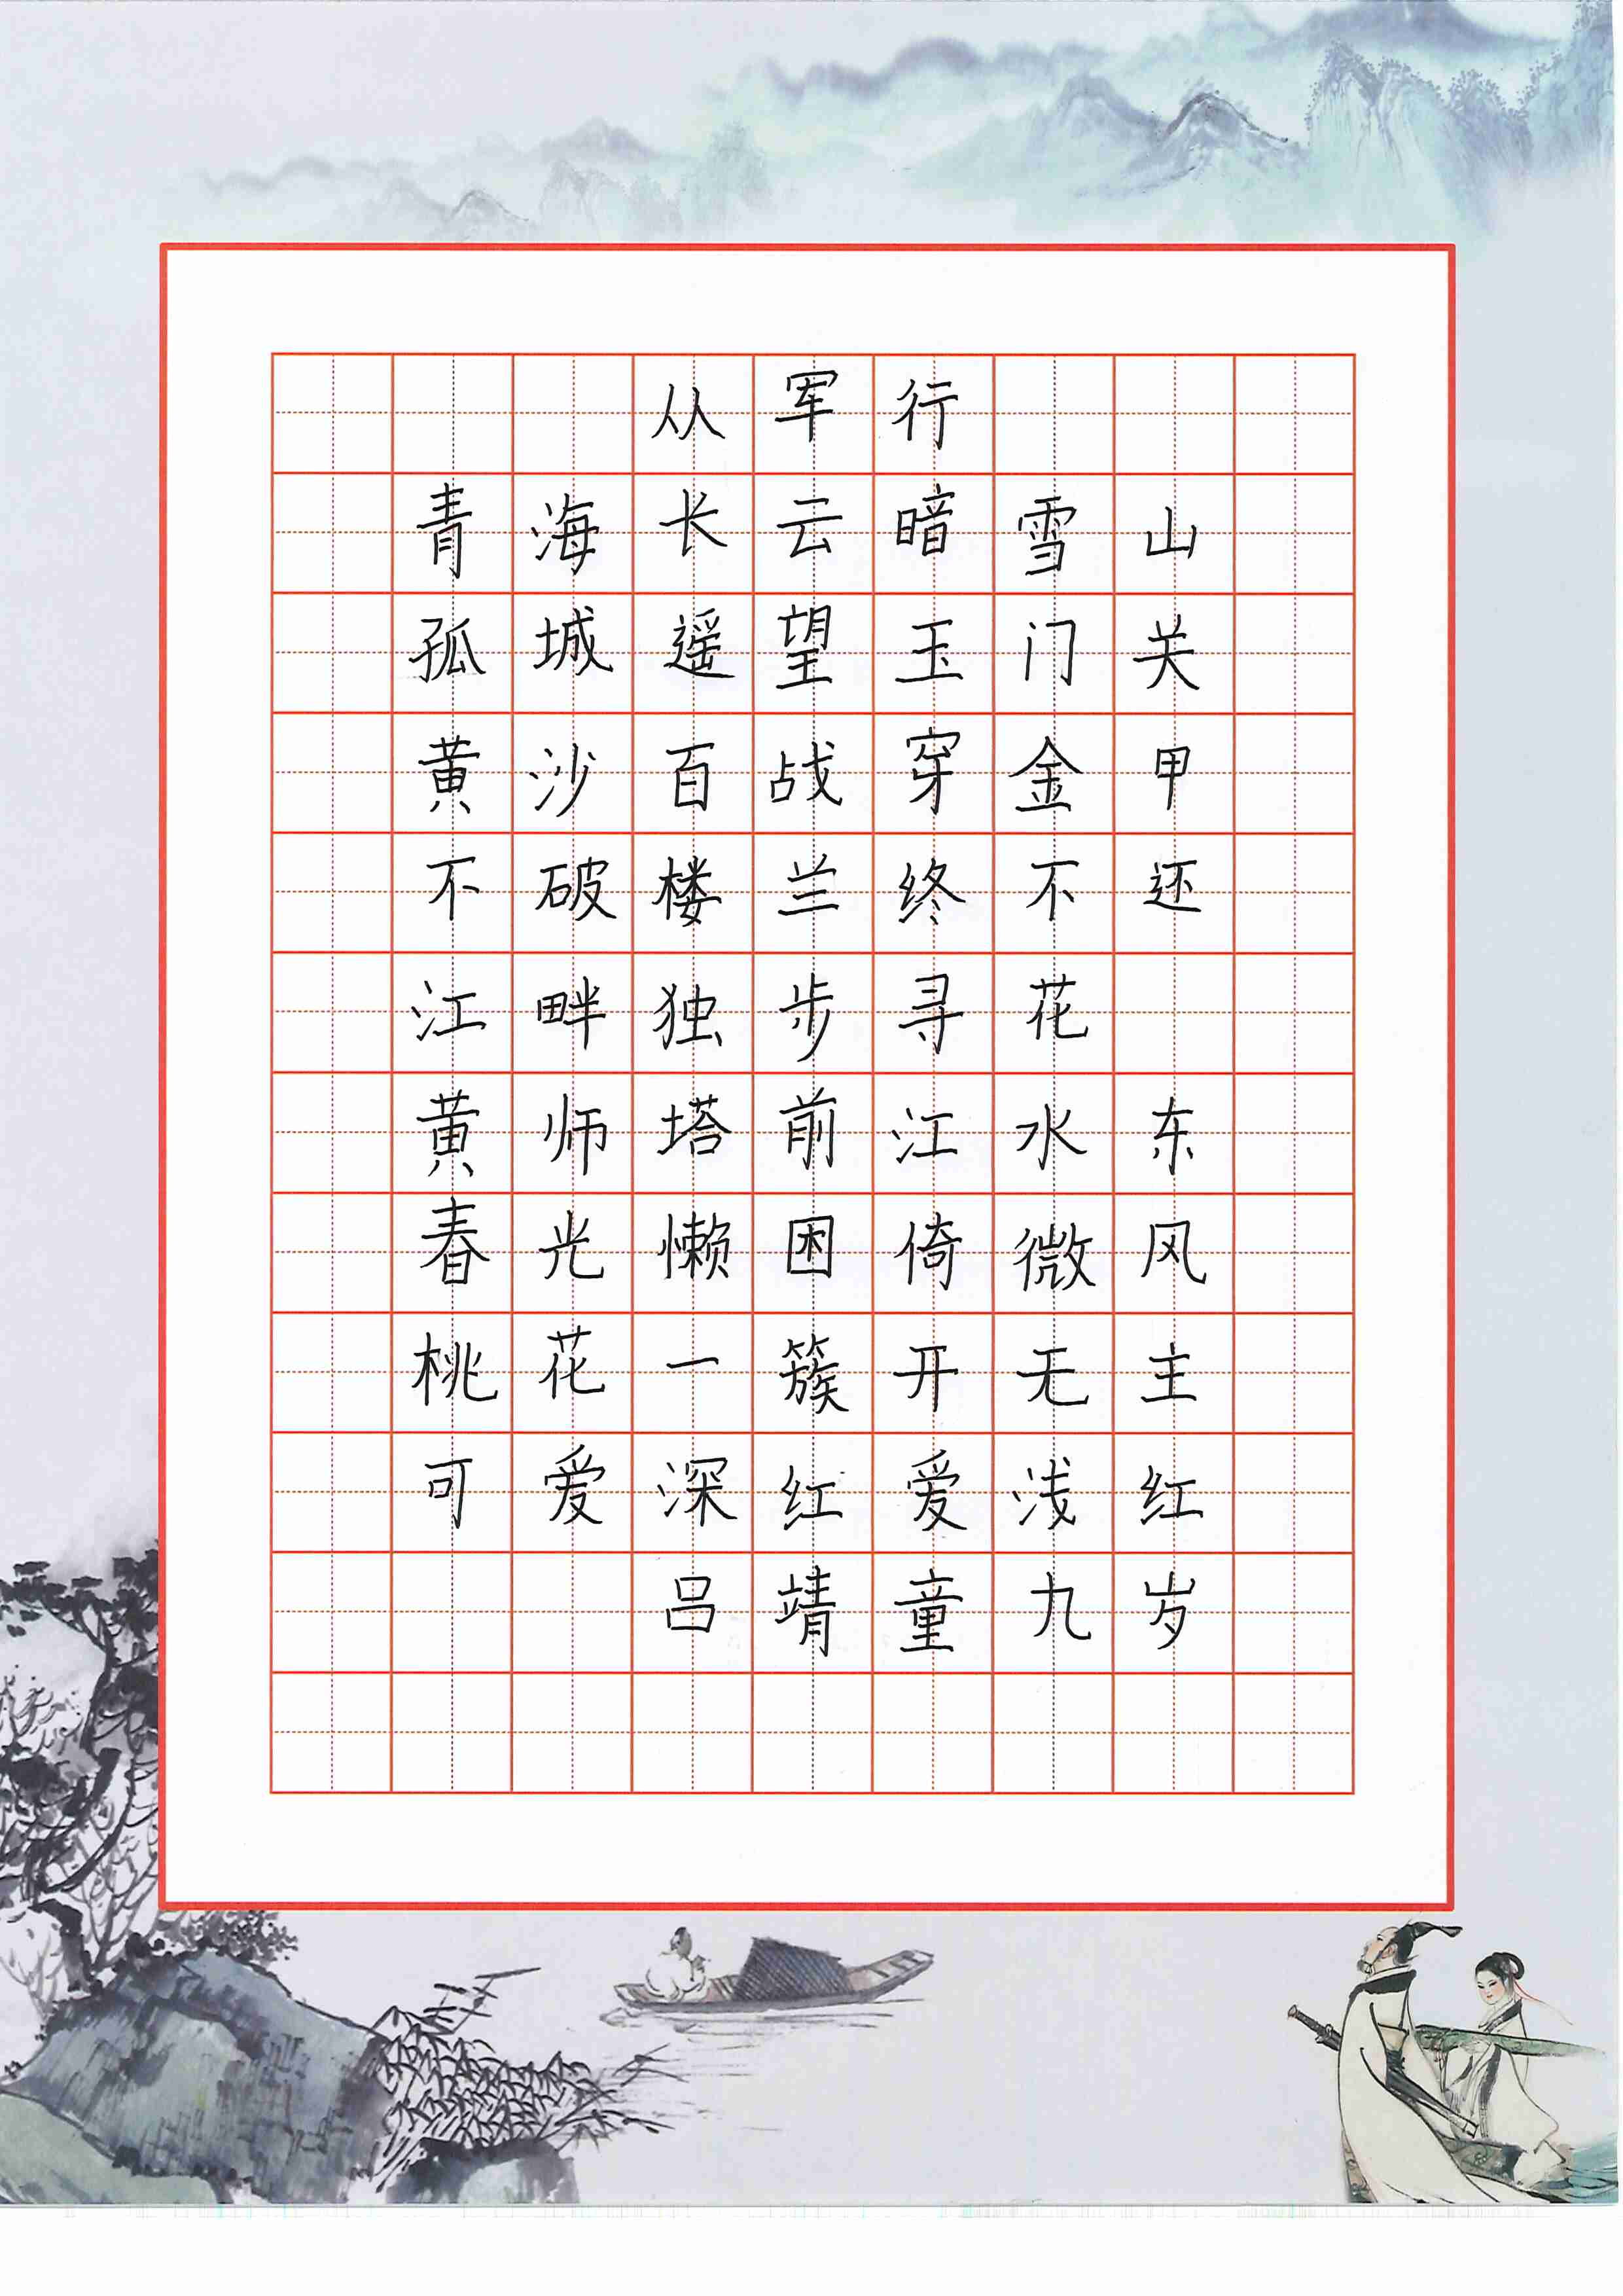 从军行
青海长云暗雪山
孤城遥望玉门关
黄沙百战穿金甲
不破楼兰终不还
江畔独步寻花
黄师塔前江水东
春光懒困倚微风
桃花一簇开无主
可爱深红爱浅红
吕靖童九岁